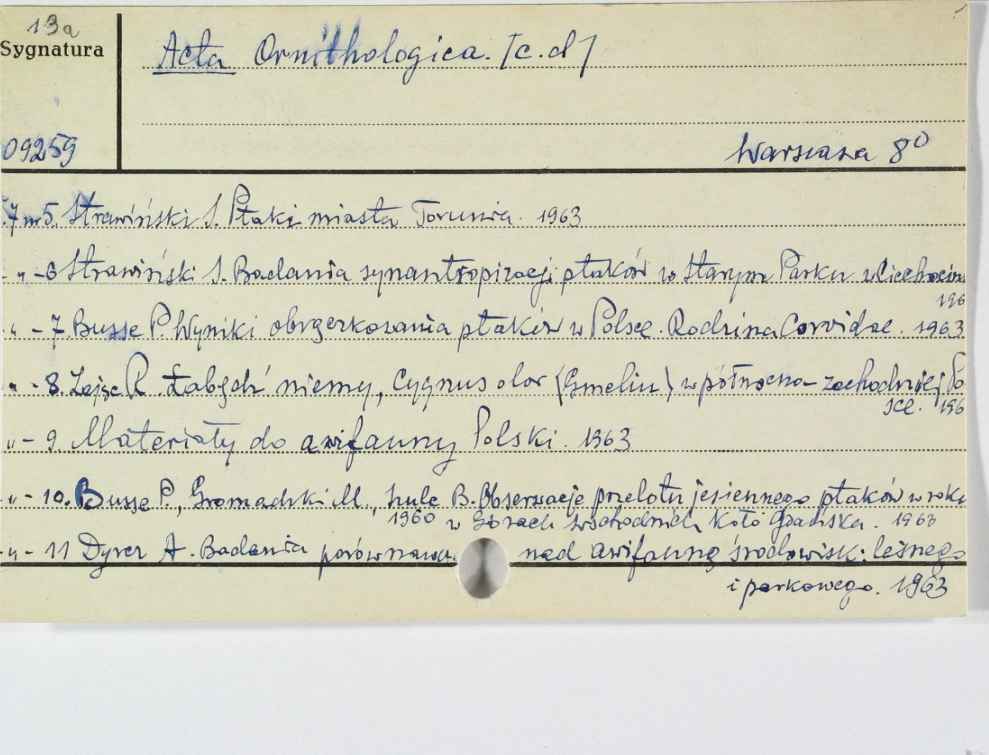 13a
Sygnatura
Acta Ornithologica. [c.d]
09259
Warszawa 8⁰
7 nr 5. Strawiński S. Ptaki miasta Torunia. 1963
" - 6 Strawiński S. Badania synantropizacji ptaków w Starym Parku w Ciechocin
196
" - 7. Busse P. Wyniki obrączkowania ptaków w Polsce. Rodzina Corvidae. 1963
" - 8. Zając R. Łabędź niemy, Cygnus olor (Gmelin) w północno-zachodniej Po
sce. 196
" - 9. Materiały do awifauny Polski. 1963
" - 10. Busse P., Gromadzki M., Szulc B. Obserwacje przelotu jesiennego ptaków w roku
1960 w Górach Wschodnich koło Gdańska. 1963
" - 11 Dyrcz A. Badania porównaw nad awifauną środowisk: leśnego
i parkowego. 1963